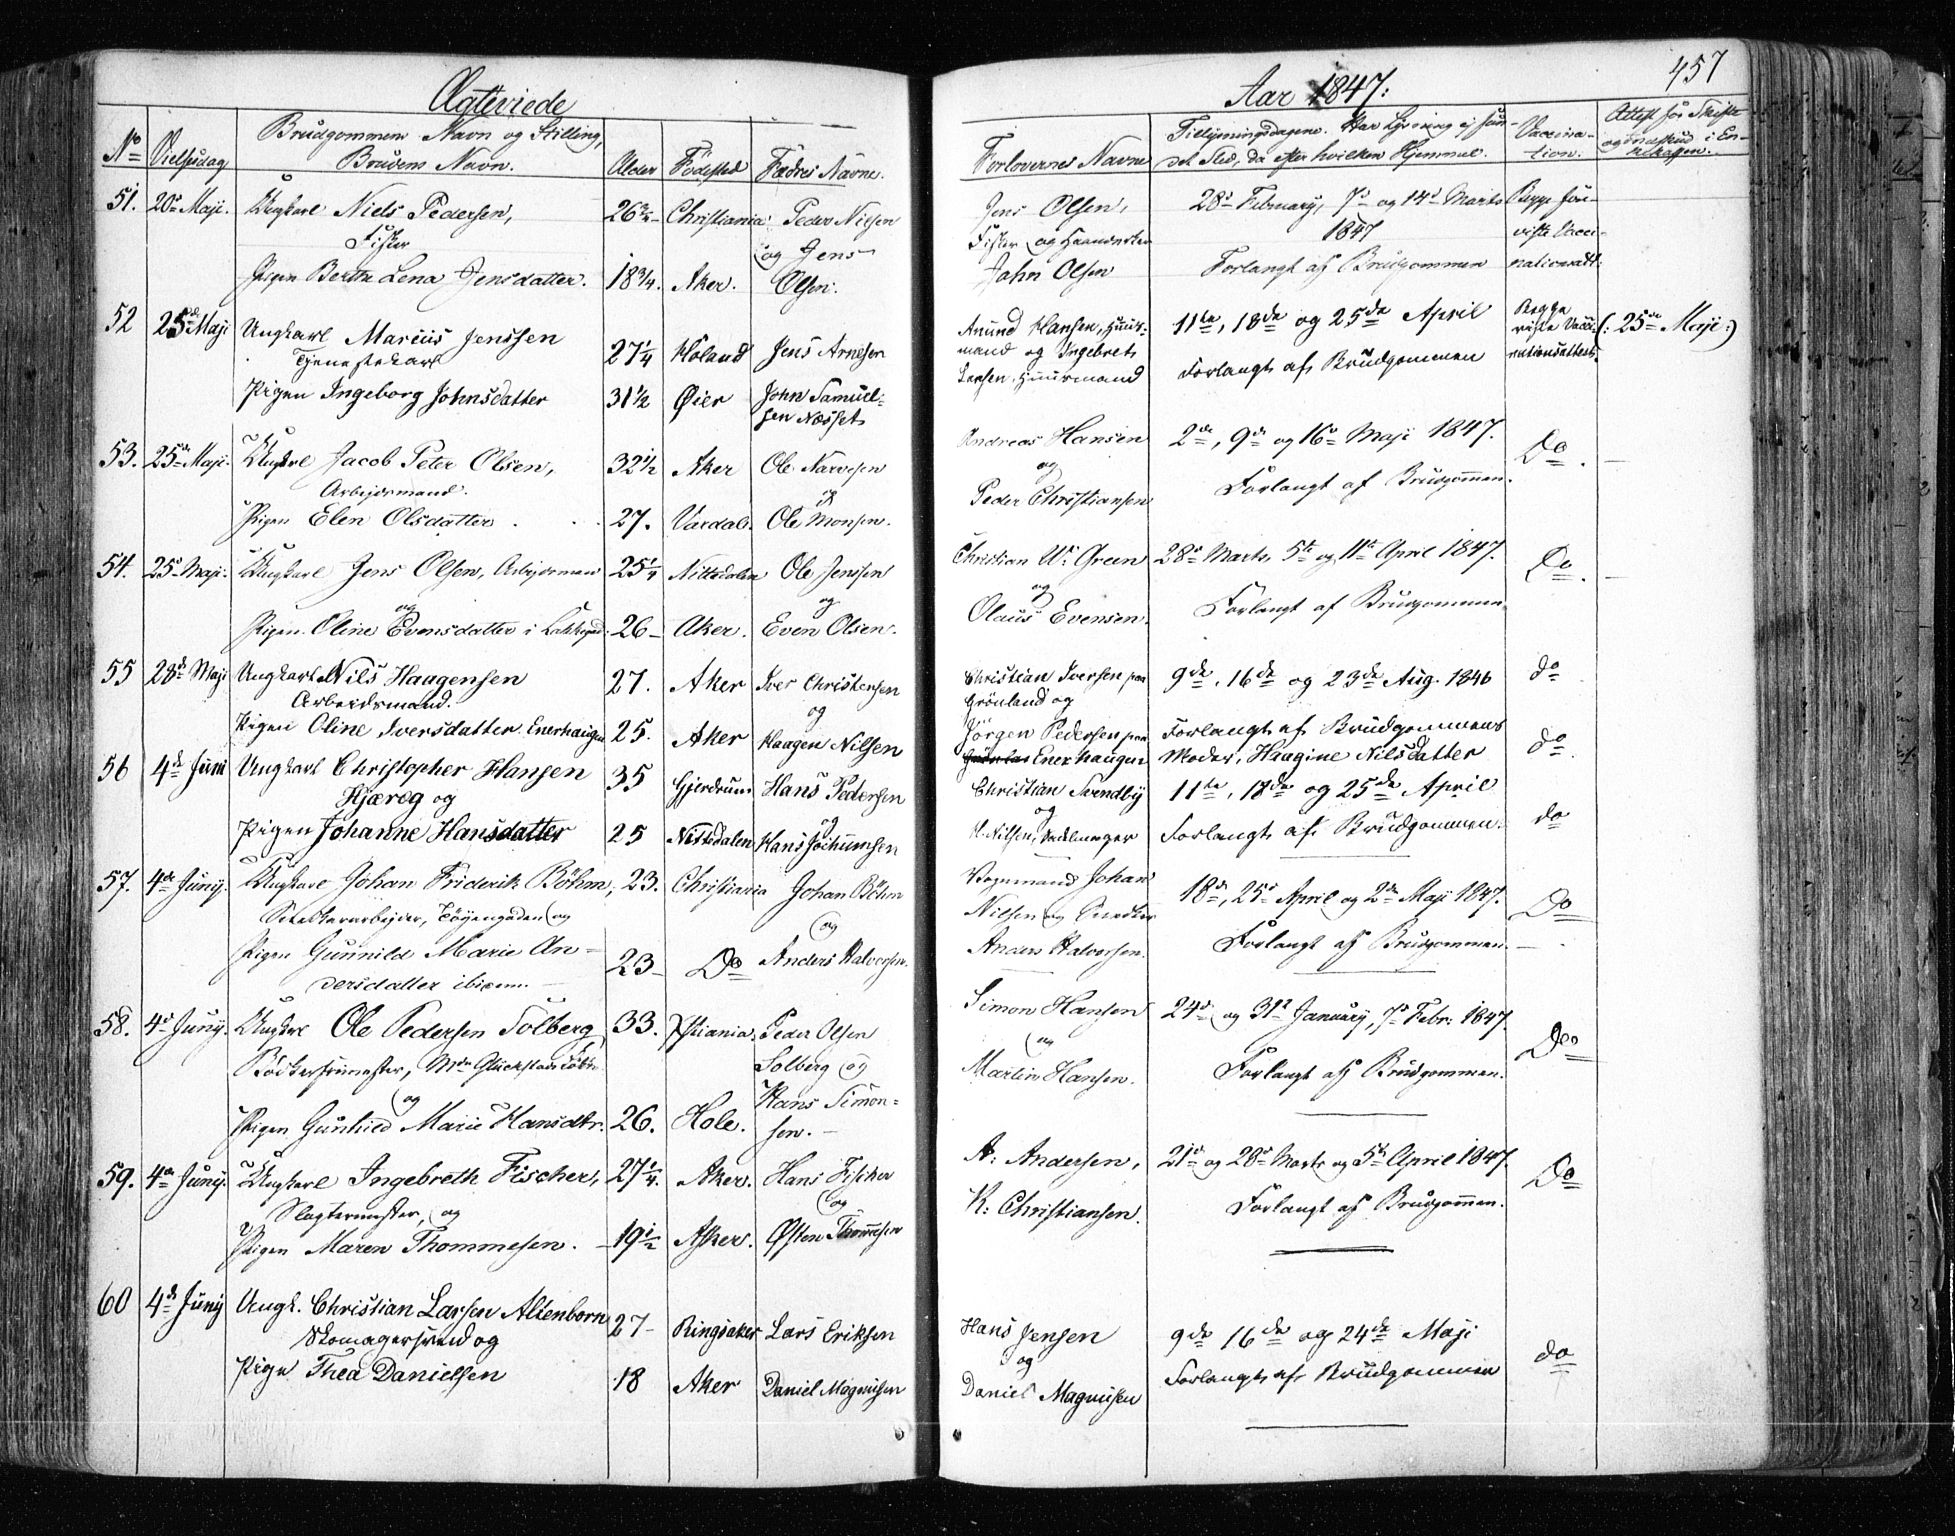 Ægteviede
No Vielsesdag Brudgommens Navn og Stilling, Brudens Navn. Alder Fødested Fædres Navne.
51. 20de Maji. Ungkarl Niels Pedersen, 26 3/4 Christiania Peder Nielsen
Fisker og Jens
Pigen Berthe Lena Jensdatter. 18 3/4. Aker. Olsen.
52 25de Maji Ungkarl Marcius Jenssen 27 1/4 Høland Jens Arnesen
Tjenestekarl
Pigen Ingeborg Johnsdatter 31 1/2 Øier John Samuel-
sen Næsset
53. 25de Maji. Ungkarl Jacob Peter Olsen, 32 1/2 Aker Ole Narvesen
Arbejdsmand. og
Pigen Elen Olsdatter 27. Vardal. Ole Monsen.
54. 25de Maji. Ungkarl Jens Olsen, Arbejdsmand 25 1/4 Nittedalen Ole Jenssen
og og
Pigen Oline Evensdatter i 26 Aker. Even Olsen.
55 28de Maji Ungkarl Nils Haagensen 27. Aker Iver Christensen
Arbeidsmand. og
Pigen Oline Iversdatter Enerhaugen 25. Aker Haagen Nilsen
56 4de Juni Ungkarl Christopher Hansen 35 Gjerdrum Hans Pedersen
Kjæreg og og
Pigen Johanne Hansdatter 25 Nittedalen Hans Jochumsen
57. 4de Junij. Ungkarl Johan Friderik Böhm, 23. Christiania Johan Böhm
Tøyengaden og og
Pigen Gunnild Marie An-
dersdatter ibidem. 23 Do Anders Halvorsen.
58. 4de Junij. Ungkarl Ole Pedersen Solberg 33. Xstiania. Peder Olsen
Bödkersvend Solberg og
og Hans Simon-
Pigen Gunhild Marie Hansdtr. 26. Hole. sen.
59. 4de Junij. Ungkarl Ingebreth Fischer, 27 1/4. Aker. Hans Fischer
Slagtermester, og og
Pigen Maren Thommesen. 19 1/2 Asker. Østen Thommesen
60 4de Junij Ungk. Christian Larsen Altenborn 27 Ringsaker Lars Eriksen
Skomagersvend og
Pige Thea Danielsen 18 Aker Daniel Magnusen
Aar 1847:
457
Forlovernes Navne Tillysningsdagene. Har Lysning ej fun-
det Sted, da efter hvilken Hjemmel. Vaccina-
tion. Attest for Skifte
Jens Olsen, 28de February, 7de og 14de Marts Begge fore-
Fisker og 1847 viste Vacci-
John Olsen Forlangt af Brudgommen nationsatt:
Amund Hansen, Huus- 11te, 18de og 25de April Begge
mand og Ingebret viste Vacci- (: 25de Maji :)
Larsen, Huusmand Forlangt af Brudgommen nationsattest.
Andreas Hansen 2de, 9de og 16de Maji 1847. Do.
og
Peder Christiansen Forlangt af Brudgommen.
Christian Green 28de Marts 5te og 11te April 1847. Do.
og
Olaus Evensen. Forlangt af Brudgommen.
Christian Iversen paa 9de, 16de og 23de Aug. 1846 do
Grönland og
Jörgen Pedersen paa Forlangt af Brudgommens
Enerhaugen Moder, Haagine Nilsdatter do
Christian Svendby 11te, 18de og 25de April
og
H. Nilsen, Vedlmager Forlangt af Brudgommen. do
Vognmand Johan 18de, 25de April og 2de Maji 1847.
Nilsen og Snedker Do
Anders Halvorsen. Forlangt af Brudgommen.
Simon Hansen 24de og 31te January, 7de Febr: 1847.
og Do
Martin Hansen. Forlangt af Brudgommen.
A: Andersen, 21de og 28de Marts og 5te April 1847. Do
K: Christiansen. Forlangt af Brudgommen.
Hans Jensen 9de 16de og 24de Maji
og do
Daniel Magnusen Forlangt af Brudgommen